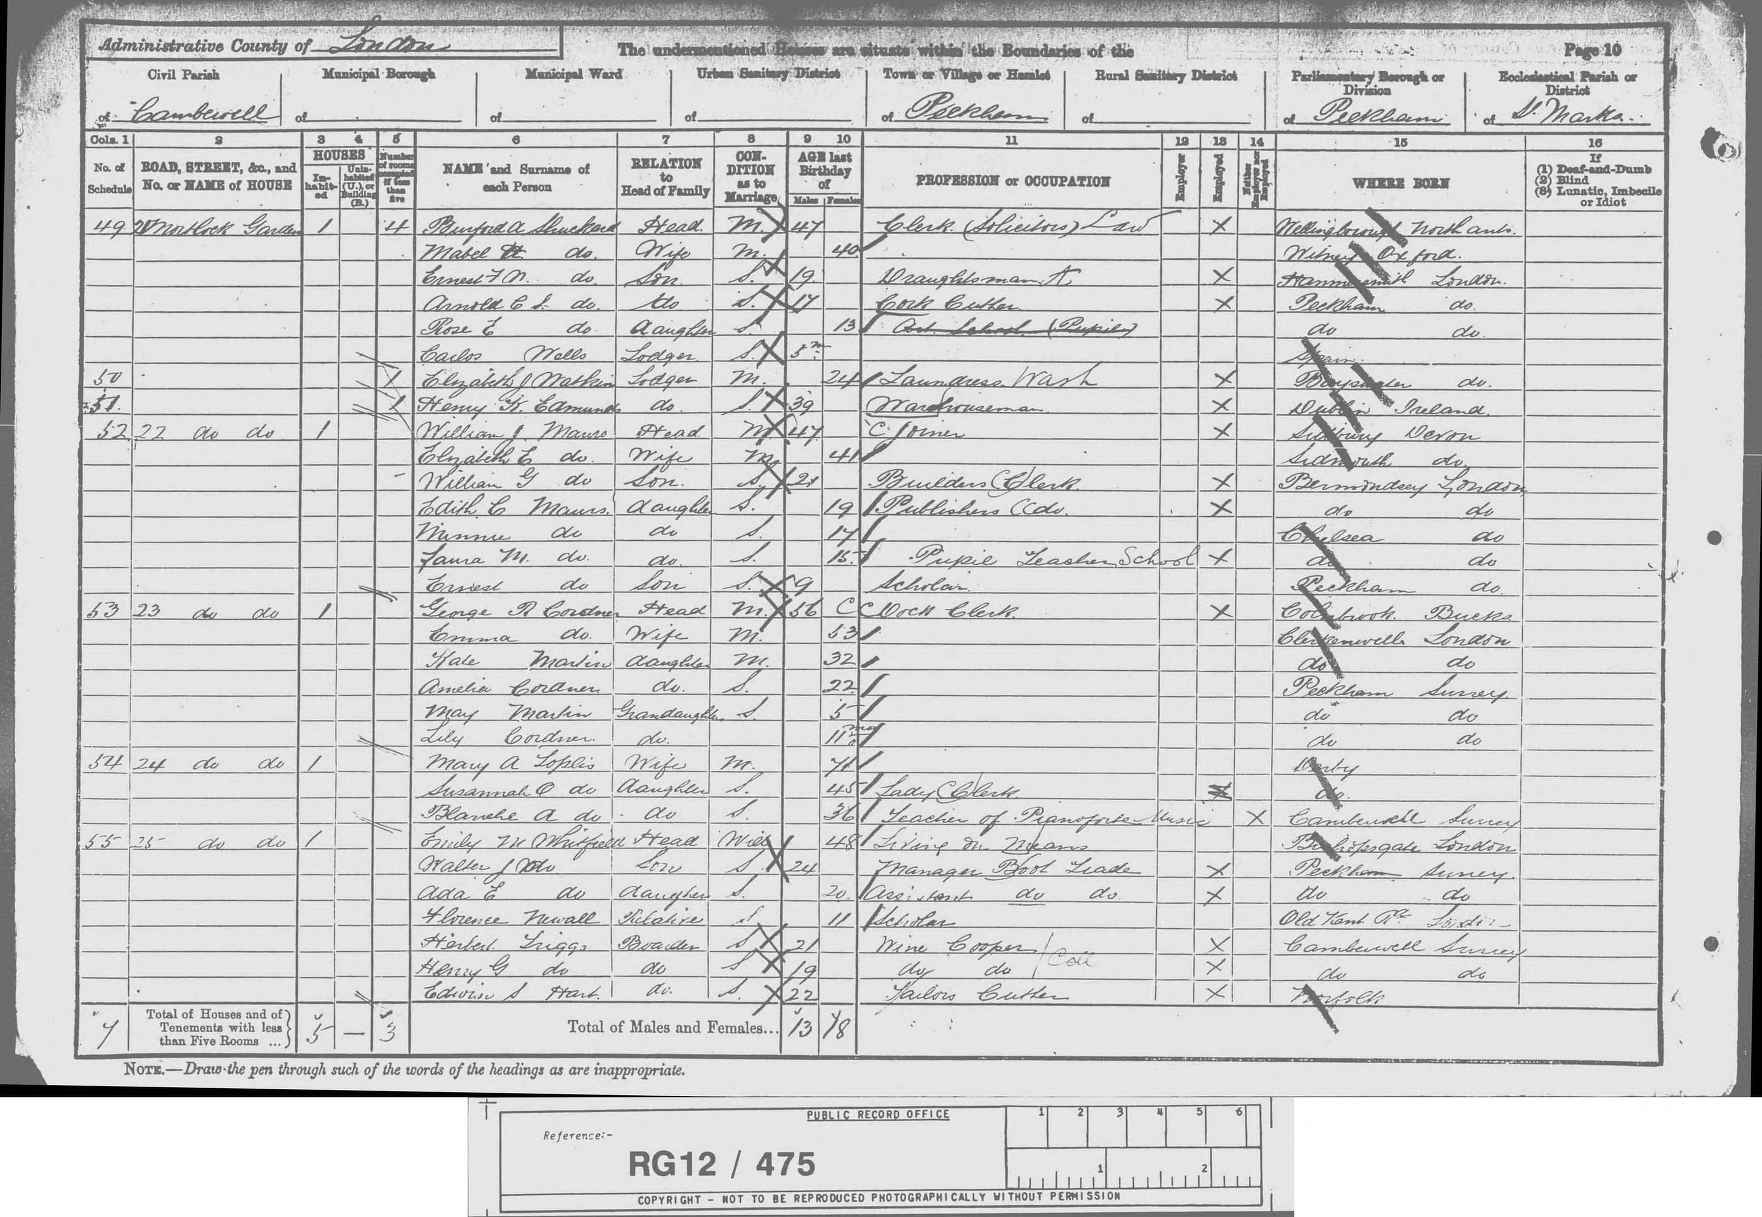 Administrative County of London
The undermentioned Houses are situate within the Boundaries of the
Page 10
Civil Parish of Camberwell
Municipal Borough of
Municipal Ward of
Urban Sanitary District of
Town or Village or Hamlet of Peckham
Rural Sanitary District of
Parliamentary Borough or Division of Peckham
Ecclesiastical Parish or District of St. Marks
Cols. 1 2 3 4 5 6 7 8 9 10 11 12 13 14 15 16
No. of Schedule
ROAD, STREET, &c., and No. or NAME of HOUSE
HOUSES
Inhabited
Uninhabited (U.), or Building (B.)
Number of rooms occupied if less than five
NAME and Surname of each Person
RELATION to Head of Family
CONDITION as to Marriage
AGE last Birthday of
Males Females
PROFESSION or OCCUPATION
Employer
Employed
Neither Employer nor Employed
WHERE BORN
If
(1) Deaf-and-Dumb
(2) Blind
(3) Lunatic, Imbecile or Idiot
49 Mortlock Garden 1 4 Burford A Shuckard Head M. 47 Clerk (Solicitors) Law X Wellingborough Northants.
Mabel do. Wife M. 40 Witney Oxford.
Ernest F. N. do Son S. 19 Draughtsman X Hammersmith London.
Arnold C S. do. do S. 17 Cork Cutter X Peckham do.
Rose E do daughter S. 13 Art School (Pupil) do do.
Carlos Wells Lodger S. 5m Spain
50 1 Elizabeth J Watkin Lodger M. 24 Laundress Wash X Bayswater do.
51. 1 Henry Edmunds do. S. 39 Warehouseman X Dublin Ireland.
52 22 do do 1 William J. Head M 47 C. Joiner X Devon
Elizabeth E do. Wife M 41 Sidmouth do.
William G do Son. S. 21 Builders Clerk X Bermondsey London
Edith C daughter S. 19 Publishers do. X do do
Minnie do do S. 17 Chelsea do
Laura M. do. do. S. 15 Pupil Teacher School X do do
Ernest do Son S. 9 Scholar. Peckham do
53 23 do do 1 George R Cordner Head M. 56 Dock Clerk. X Colnbrook Bucks
Emma do. Wife M. 53 Clerkenwell London
Kate Martin daughter M. 32 do do
Amelia Cordner do. S. 22 Peckham Surrey
May Martin Grandaughter S. 5 do do
Lily Cordner. do. 11 mos do do
54 24 do do 1 Mary A Toplis Wife M. 71 Derby
Susannah C do daughter S. 45 Lady Clerk do.
Blanche A do do S. 36 Teacher of Pianoforte Music X Camberwell Surrey
55 25 do do 1 Emily M Whitfield Head Wid 48 Living on Means Bishopsgate London
Walter J do Son S 24 Manager Boot Trade X Peckham Surrey.
Ada E do daughter S. 20 Assistant do do X do do
Florence Newall Relative S 11 Scholar Old Kent Rd London
Herbert Griggs Boarder S 21 Wine Cooper X Camberwell Surrey
Henry G do do S 19 do do X do do
Edwin S Hart. do. S. 22 Tailors Cutter X Norfolk
7 Total of Houses and of Tenements with less than Five Rooms ... 5 — 3 Total of Males and Females... 13 18
NOTE.—Draw the pen through such of the words of the headings as are inappropriate.
PUBLIC RECORD OFFICE
1 2 3 4 5 6
Reference:-
RG12 / 475
1 2
COPYRIGHT - NOT TO BE REPRODUCED PHOTOGRAPHICALLY WITHOUT PERMISSION